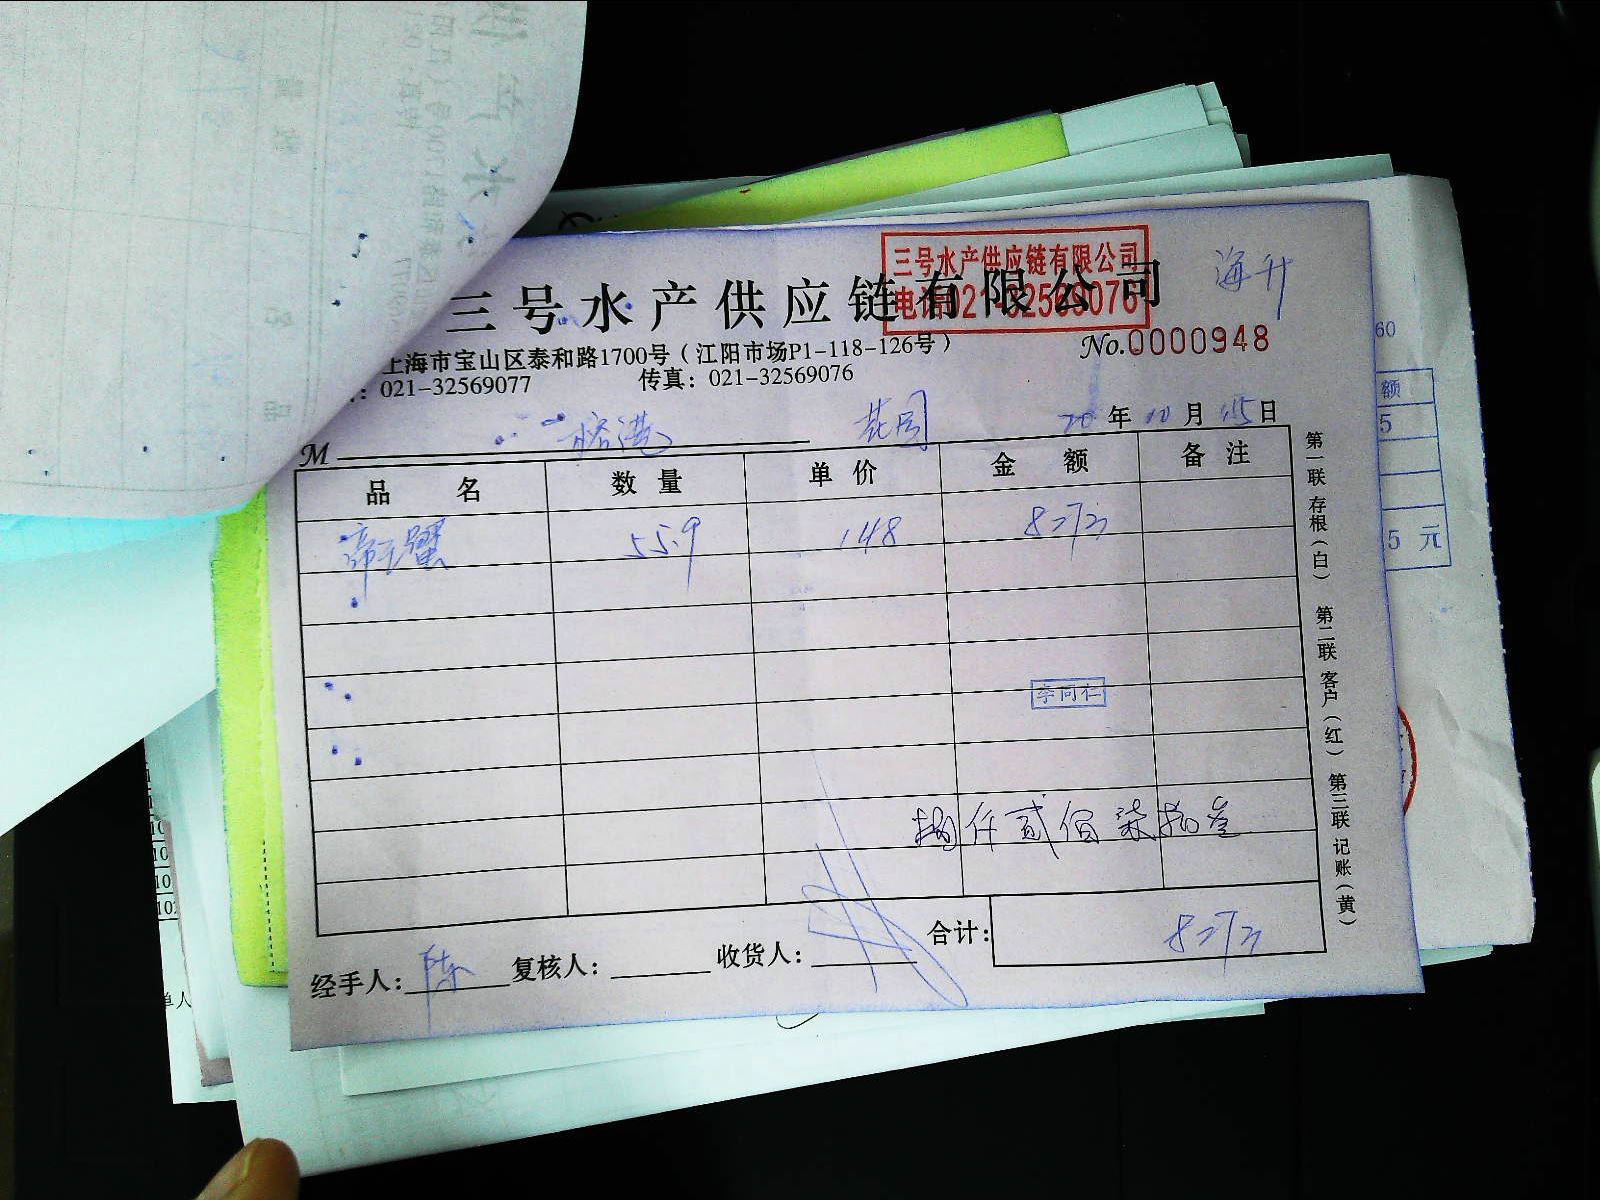 三号水产供应链有限公司
三号水产供应链有限公司
电话021-32569076
海升
上海市宝山区泰和路1700号（江阳市场P1-118-126号）
No.0000948
：021-32569077 传真：021-32569076
M 榕港 花园 20年10月15日
品名 数量 单价 金额 备注
帝王蟹 55.9 148 8273
李同仁
捌仟贰佰柒拾叁
合计： 8273
经手人：陈 复核人： 收货人：
第一联 存根（白） 第二联 客户（红） 第三联 记账（黄）
60
额
5
5 元
单人